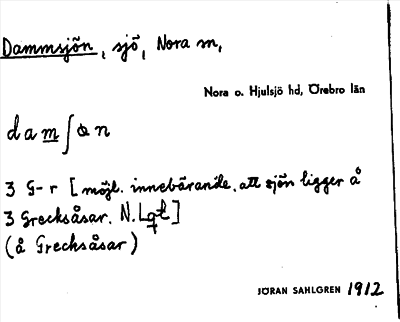 Dammsjön, sjö, Nora sn,
Nora o. Hjulsjö hd, Örebro län
damʃøn
3 G-r [möjl. innebärande, att sjön ligger å
3 Grecksåsar. N. Lqt]
(å Grecksåsar)
JÖRAN SAHLGREN 1912